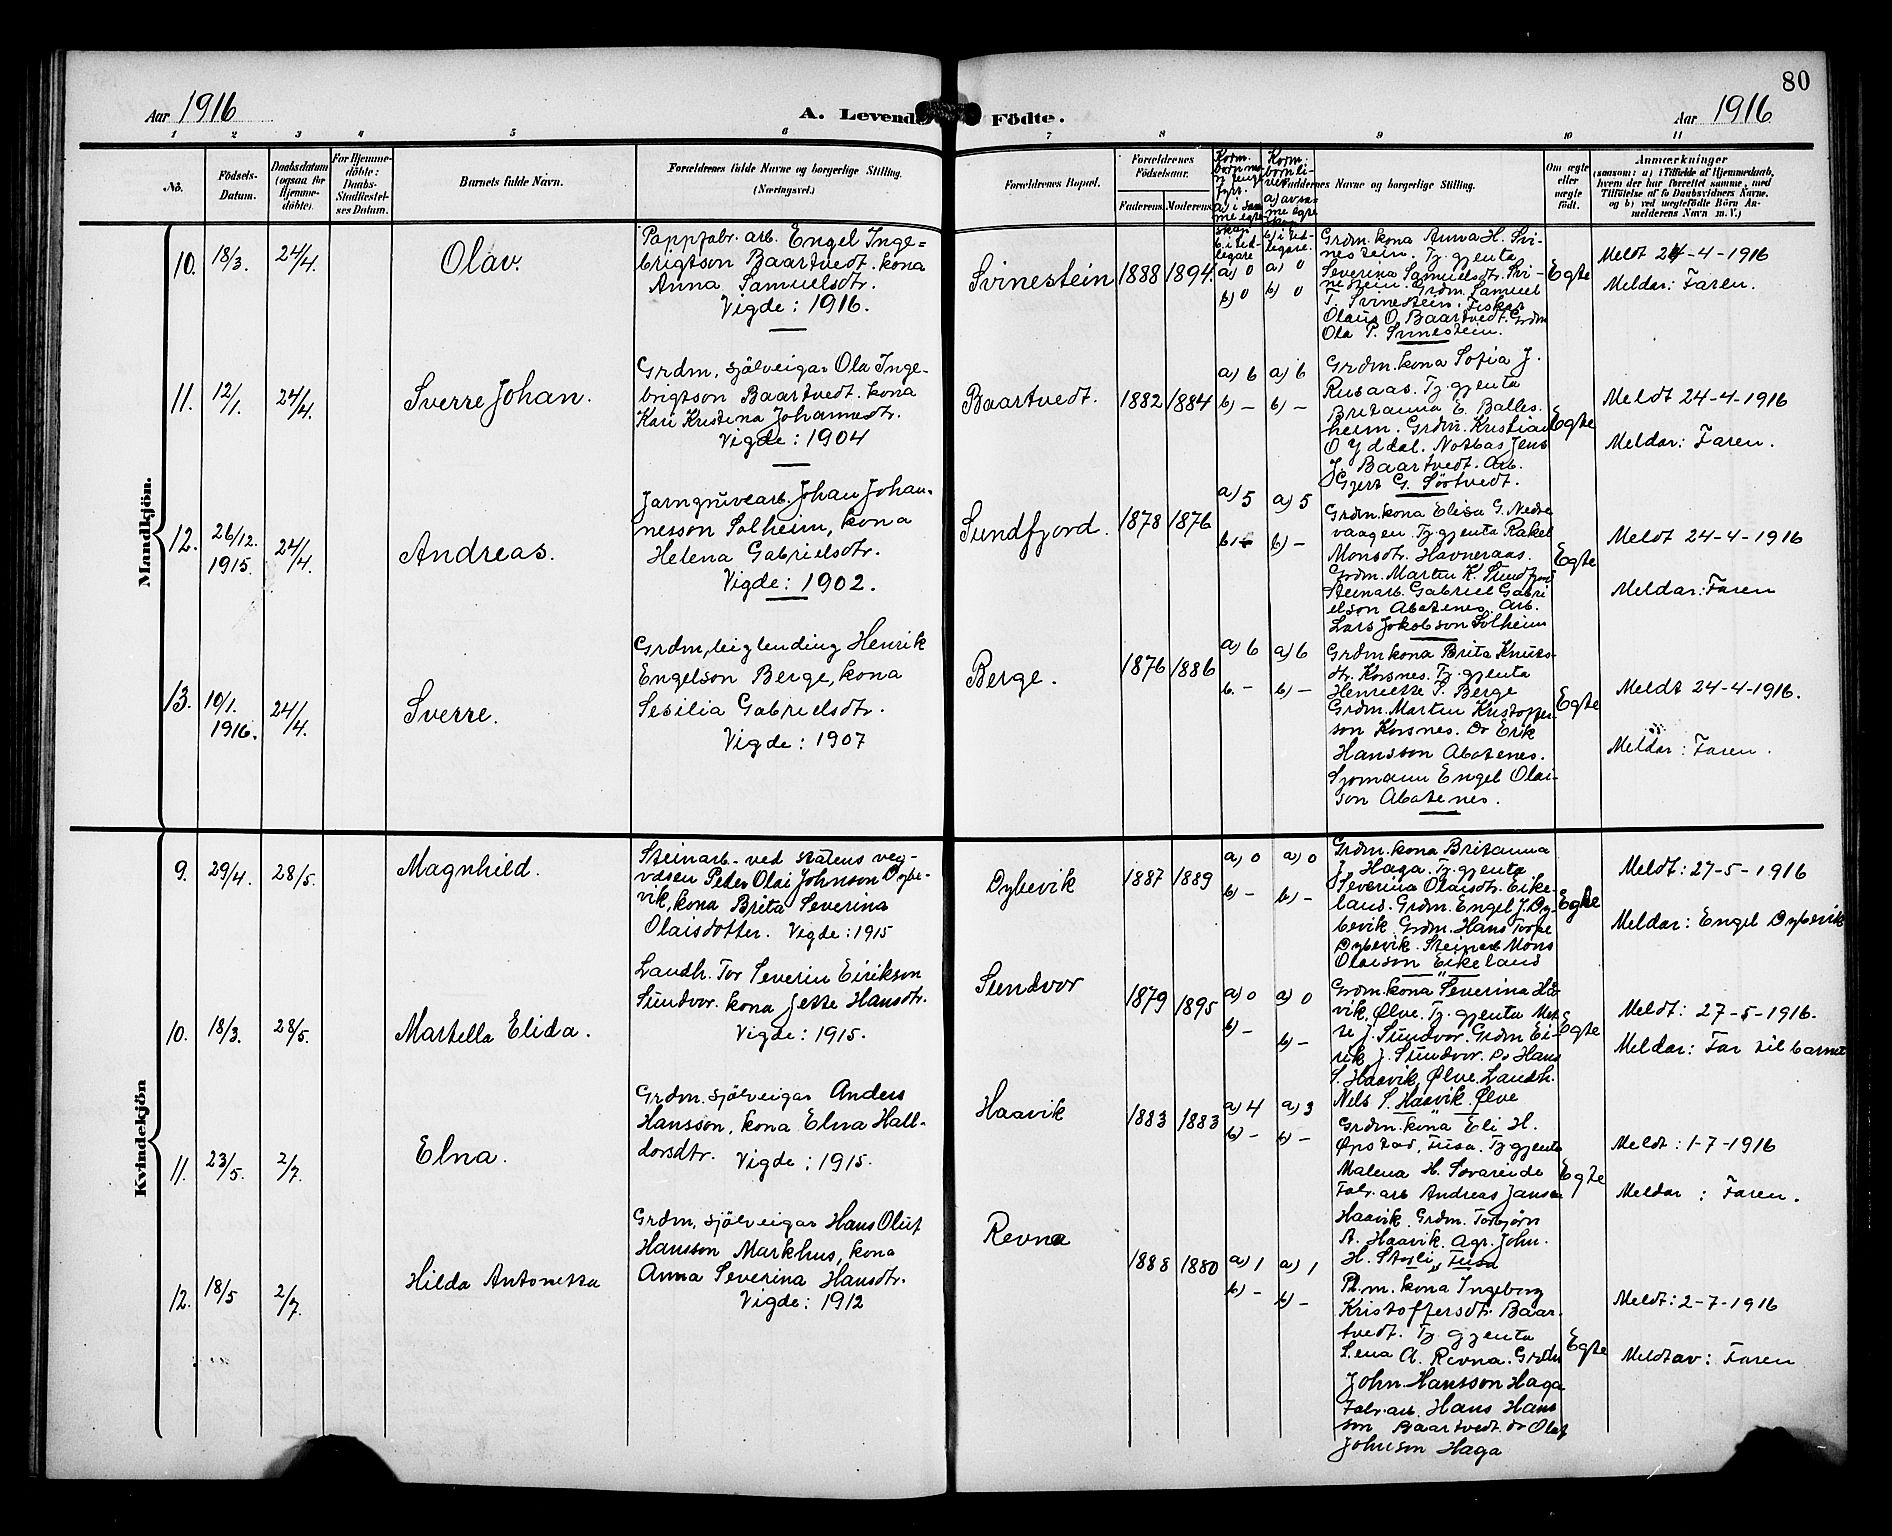 80
Aar 1916
A. Levende Födte.
Aar 1916
1 2 3 4 5 6 7 8 9 10 11
No.
Födsels-
Datum.
Daabsdatum
(ogsaa for
Hjemme-
döbte).
For Hjemme-
döbte:
Daabs-
Stadfæstel-
ses Datum.
Barnets fulde Navn.
Forældrenes fulde Navne og borgerlige Stilling.
(Næringsvei.)
Forældrenes Bopæl.
Forældrenes
Födselsaar.
Faderens. Moderens.
Faddernes Navne og borgerlige Stilling.
Om ægte
eller
uægte
födt.
Anmærkninger
(saasom: a) i Tilfælde af Hjemmedaab,
hvem der har forrettet samme, med
Tilföielse af to Daabsvidners Navne,
og b) ved uægtefödte Börn An-
melderens Navn m. V.)
Mandkjön.
10. 18/3. 24/4. Olav.
Pappfabr. arb. Engel Inge-
brigtson Baartvedt. kona
Anna Samuelsdtr.
Vigde: 1916.
Svinestein 1888 1894.
a) 0 a) 0
b) 0 b) 0
Grdm. kona Anna H. Svi-
nestein. Tj. gjenta
Severina Samuelsdtr. Svi-
nestein. Grdm. Samuel
T. Svinestein. Fisker
Olaus O. Baartvedt. Grdm
Ola T. Svinestein.
Egte
Meldt 24-4-1916
Meldar: Faren.
11. 12/1. 24/4. Sverre Johan.
Grdm, sjölveigar Ola Inge-
brigtson Baartvedt. kona
Kari Kristina Johannesdtr.
Vigde: 1904
Baartvedt. 1882 1884
a) 6 a) 6
b) – b) –
Grdm. kona Sofia J.
Rusaas. Tj. gjenta
Britanna E. Balles-
heim. Grdm. Kristian
O Yddal. Notbas Jens
J. Baartvedt. Arb.
Gjert G. Sörtvedt.
Egte
Meldt 24-4-1916
Meldar: Faren.
12. 26/12. 1915. 24/4. Andreas.
Jarngruvearb. Johan Johan-
nesson Solheim, kona
Helena Gabrielsdtr.
Vigde: 1902.
Sundfjord. 1878 1876
a) 5 a) 5
b) – b) –
Grdm. kona Elisa G. Nedre
vaagen. Tj. gjenta Rakel
Monsdtr. Havneraas.
Grdm. Marten K. Sundfjord
Steinarb. Gabriel Gabri-
elson Abotenes. Arb.
Lars Jokobson Solheim
Egte
Meldt 24-4-1916
Meldar: Faren
13. 10/1. 1916. 24/4. Sverre.
Grdm, leiglending Henrik
Engelson Berge, kona
Sesilia Gabrielsdtr.
Vigde: 1907
Berge. 1876 1886
a) 6 a) 6
b. – b) –
Grdm kona Brita Knuts-
dtr. Korsnes. Tj. gjenta
Henriette S. Berge
Grdm. Marten Kristoffer-
son Korsnes. Do Erik
Hansson Abotenes.
Sjömann Engel Olai-
son Abotenes.
Egte
Meldt 24-4-1916.
Meldar: Faren.
Kvindekjön
9. 29/4. 28/5. Magnhild.
Steinarb. ved statens veg-
væsen Peder Olai Johnson Dybe-
vik, kona Brita Severina
Olaisdotter. Vigde: 1915
Dybevik 1887 1889
a) 0 a) 0
b) – b) –
Grdm. kona Britanna
J. Haga. Tj. gjenta
Severina Olaisdtr. Eike-
land. Grdm. Engel J. Dy-
bevik. Grdm. Hans Torpe
Dybevik. Steinarb Mons
Olaison Eikeland
Egte
Meldt: 27-5-1916
Meldar: Engel Dybevik
10. 18/3. 28/5. Martella Elida.
Landh. Tor Severin Eirikson
Sundvor. kona Jette Hansdtr.
Vigde: 1915.
Sundvor 1879 1895
a) 0 a) 0
b) – b) –
Grdm. kona Severina Haa-
vik, Ølve. Tj. gjenta Met-
te J. Sundvor. Grdm Ei-
rik J. Sundvor. Do Hans
S. Haavik, Ølve. Landh.
Nels S. Haavik. Ølve
Egte
Meldt: 27-5-1916.
Meldar: Far til barnet
11. 23/5. 2/7. Elna.
Grdm. sjölveigar Anders
Hansson, kona Elna Hall-
dorsdtr. Vigde: 1915.
Haavik 1883 1883
a) 4 a) 3
b) – b) –
Grdm. kona Eli H.
Øpstad, Fusa. Tj gjenta
Malena H. Sövareide
Fabr. arb Andreas Jansen
Haavik. Grdm. Torbjörn
A. Haavik. Agr. John.
H. Storli, Fusa
Egte
Meldt: 1-7-1916
Meldar: Faren.
12. 18/5 2/7. Hilda Antonetta
Grdm, sjölveigar Hans Oluf
Hansson Markhus, kona
Anna Severina Hansdtr.
Vigde: 1912
Revna 1888 1880
a) 1 a) 1
b) – b) –
Pl. m. kona Ingeborg
Kristoffersdtr. Baar-
tvedt. Tj. gjenta
Lena A. Revna. Grdm
John. Hansson Haga
Fabr. arb. Hans Hans
son Baartvedt. do Olaf
Johnson Haga
Egte
Meldt: 2-7-1916
Meldt av: Faren